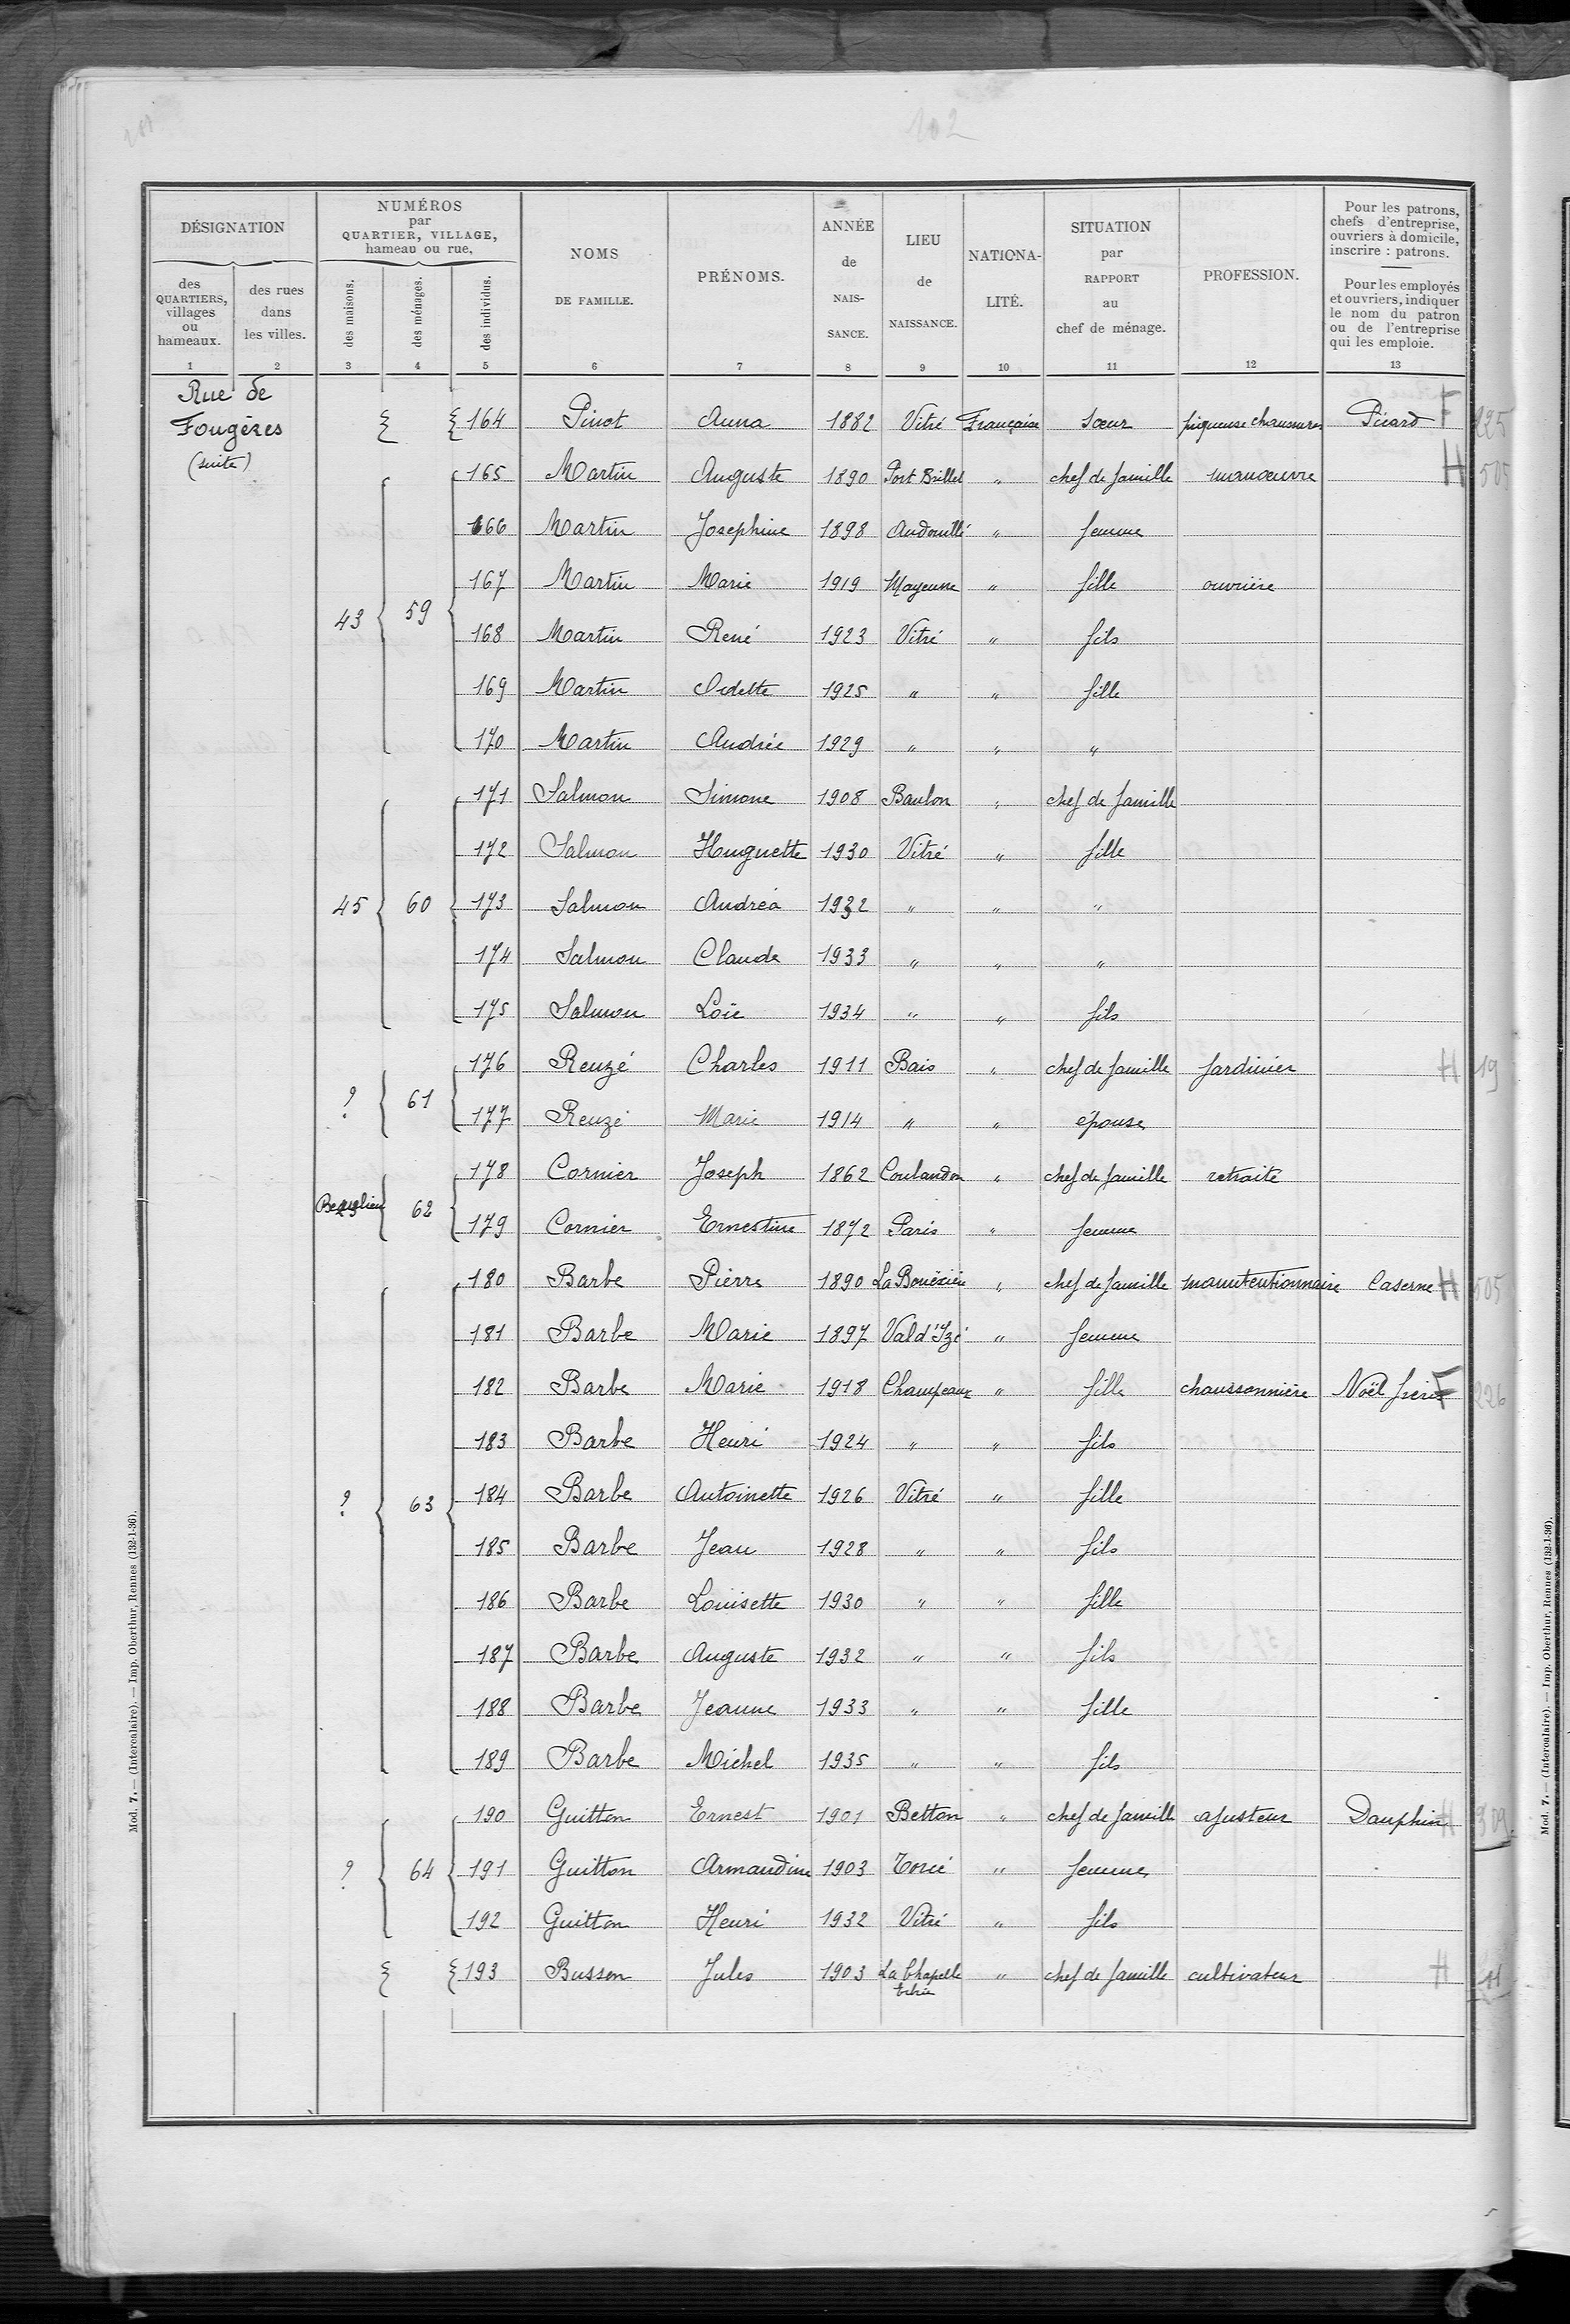 102
DÉSIGNATION
NUMÉROS
par
QUARTIER, VILLAGE,
hameau ou rue,
des
QUARTIERS,
villages
ou
hameaux.
des rues
dans
les villes.
des maisons.
des ménages.
des individus.
NOMS
DE FAMILLE.
PRÉNOMS.
ANNÉE
de
NAIS-
SANCE.
LIEU
de
NAISSANCE.
NATIONA-
LITÉ.
SITUATION
par
RAPPORT
au
chef de ménage.
PROFESSION.
Pour les patrons,
chefs d'entreprise,
ouvriers à domicile,
inscrire : patrons.
Pour les employés
et ouvriers, indiquer
le nom du patron
ou de l'entreprise
qui les emploie.
1 2 3 4 5 6 7 8 9 10 11 12 13
Rue de
Fougères
(suite)
164 Pinot Anna 1882 Vitré Française sœur piqueuse chaussures Picard F 225
165 Martin Auguste 1890 Port Brillet " chef de famille manœuvre H 505
166 Martin Josephine 1898 Andouillé " femme
167 Martin Marie 1919 Mayenne " fille ouvrière
43 59
168 Martin René 1923 Vitré " fils
169 Martin Odette 1925 " " fille
170 Martin Andrée 1929 " " "
171 Salmon Simone 1908 Baulon " chef de famille
172 Salmon Huguette 1930 Vitré " fille
45 60 173 Salmon Andréa 1932 " " "
174 Salmon Claude 1933 " " "
175 Salmon Loïc 1934 " " fils
176 Reuzé Charles 1911 Bais " chef de famille jardinier H 19
? 61
177 Reuzé Marie 1914 " " épouse
178 Cornier Joseph 1862 Coulandon " chef de famille retraité
Beaulieu 62
179 Cornier Ernestine 1872 Paris " femme
180 Barbe Pierre 1890 La Bouëxière " chef de famille manutentionnaire Caserne H 505
181 Barbe Marie 1897 Val d'Izé " femme
182 Barbe Marie 1918 Champeaux " fille chaussonnière Noël frères F 226
183 Barbe Henri 1924 " " fils
? 63 184 Barbe Antoinette 1926 Vitré " fille
185 Barbe Jean 1928 " " fils
186 Barbe Louisette 1930 " " fille
187 Barbe Auguste 1932 " " fils
188 Barbe Jeanne 1933 " " fille
189 Barbe Michel 1935 " " fils
190 Guitton Ernest 1901 Betton " chef de famille ajusteur Dauphin H 309
? 64 191 Guitton Armandine 1903 Torcé " femme
192 Guitton Henri 1932 Vitré " fils
193 Busson Jules 1903 La Chapelle " chef de famille cultivateur H 11
Mod. 7. — (Intercalaire). — Imp. Oberthur, Rennes (132-1-36).
Mod. 7. — (Intercalaire). — Imp. Oberthur, Rennes (132-1-36).